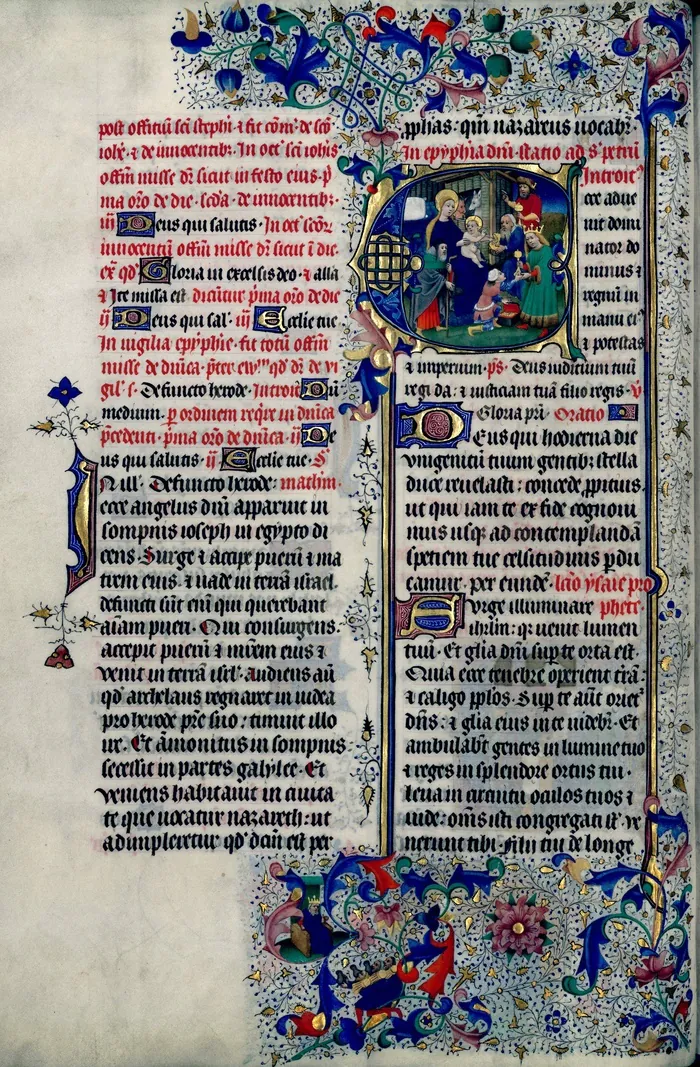 post officiū sci stephi · ⁊ fit com̄ · de scō
iohe · ⁊ de innocentib · In oct̄ sci iohis
offm̄ misse dr̄ sicut in festo eius · p̄
ma orō de die · scd̄a · de innocentib ·
iij Deus qui salutis · In oct̄ scōr
innocentiū offm̄ misse dr̄ sicut ī die ·
ex̄ qd̄ Gloria in excelsis deo · ⁊ alla
⁊ Ite missa est dicūtur p̄ma orō de die
ij Deus qui sal · iij Ecclie tue
In vigilia epyphie · fit totū offm̄
misse de dnica · p̄ter ewm̄ qd̄ dr̄ de vi
gil · s · Defuncto herode · Introit Dū
medium · p ordinem req̄re in dnica
p̄cedenti · p̄ma orō de dnica · ij De
us qui salutis · ij Ecclie tue · S
In ill · Defuncto herode : mathm̄ ·
ecce angelus dn̄i apparuit in
sompnis ioseph in egypto di
cens · Surge ⁊ accipe puerū ⁊ ma
trem eius · ⁊ uade in terrā israel ·
defuncti sūt enī qui querebant
aīam pueri · Qui consurgens ·
accepit puerū ⁊ mr̄em eius ⁊
venit in terrā isrl · audiens aū
qd̄ archelaus regnaret in iudea
pro herode pr̄e suo : timuit illo
ire · Et āmonitus in sompnis
secessit in partes galylee · Et
veniens habitauit in ciuita
te que uocatur nazareth : ut
adimpleretur qd̄ dcm̄ est per
pphas : qm̄ nazareus uocabr̄ ·
In epyphia dn̄i · statio ad s · petrū
Introit
cce adue
nit domi
nator do
minus ⁊
regnū in
manu ei9
⁊ potestas
⁊ imperium · ps · Deus iudicium tuū
regi da : ⁊ iusticiam tuā filio regis · v
Gloria pri · Oratio
Deus qui hodierna die
vnigenitū tuum gentib stella
duce reuelasti : concede ppitius
ut qui iam te ex fide cognoui
mus usq ad contemplandā
speciem tue celsitudinis pdu
camur · per eundē · lcō ysaie pro
Surge illuminare phete ·
ihrlm : q uenit lumen
tuū · Et glia dn̄i sup te orta est ·
Quia ecce tenebre operient trā :
⁊ caligo pplos · Sup te aūt oriet
dn̄s : ⁊ glia eius in te uidebr̄ · Et
ambulabt gentes in lumine tuo
⁊ reges in splendore ortus tui ·
leua in circuitu oculos tuos ⁊
uide : om̄s isti congregati st̄ · ve
nerunt tibi · filii tui de longe